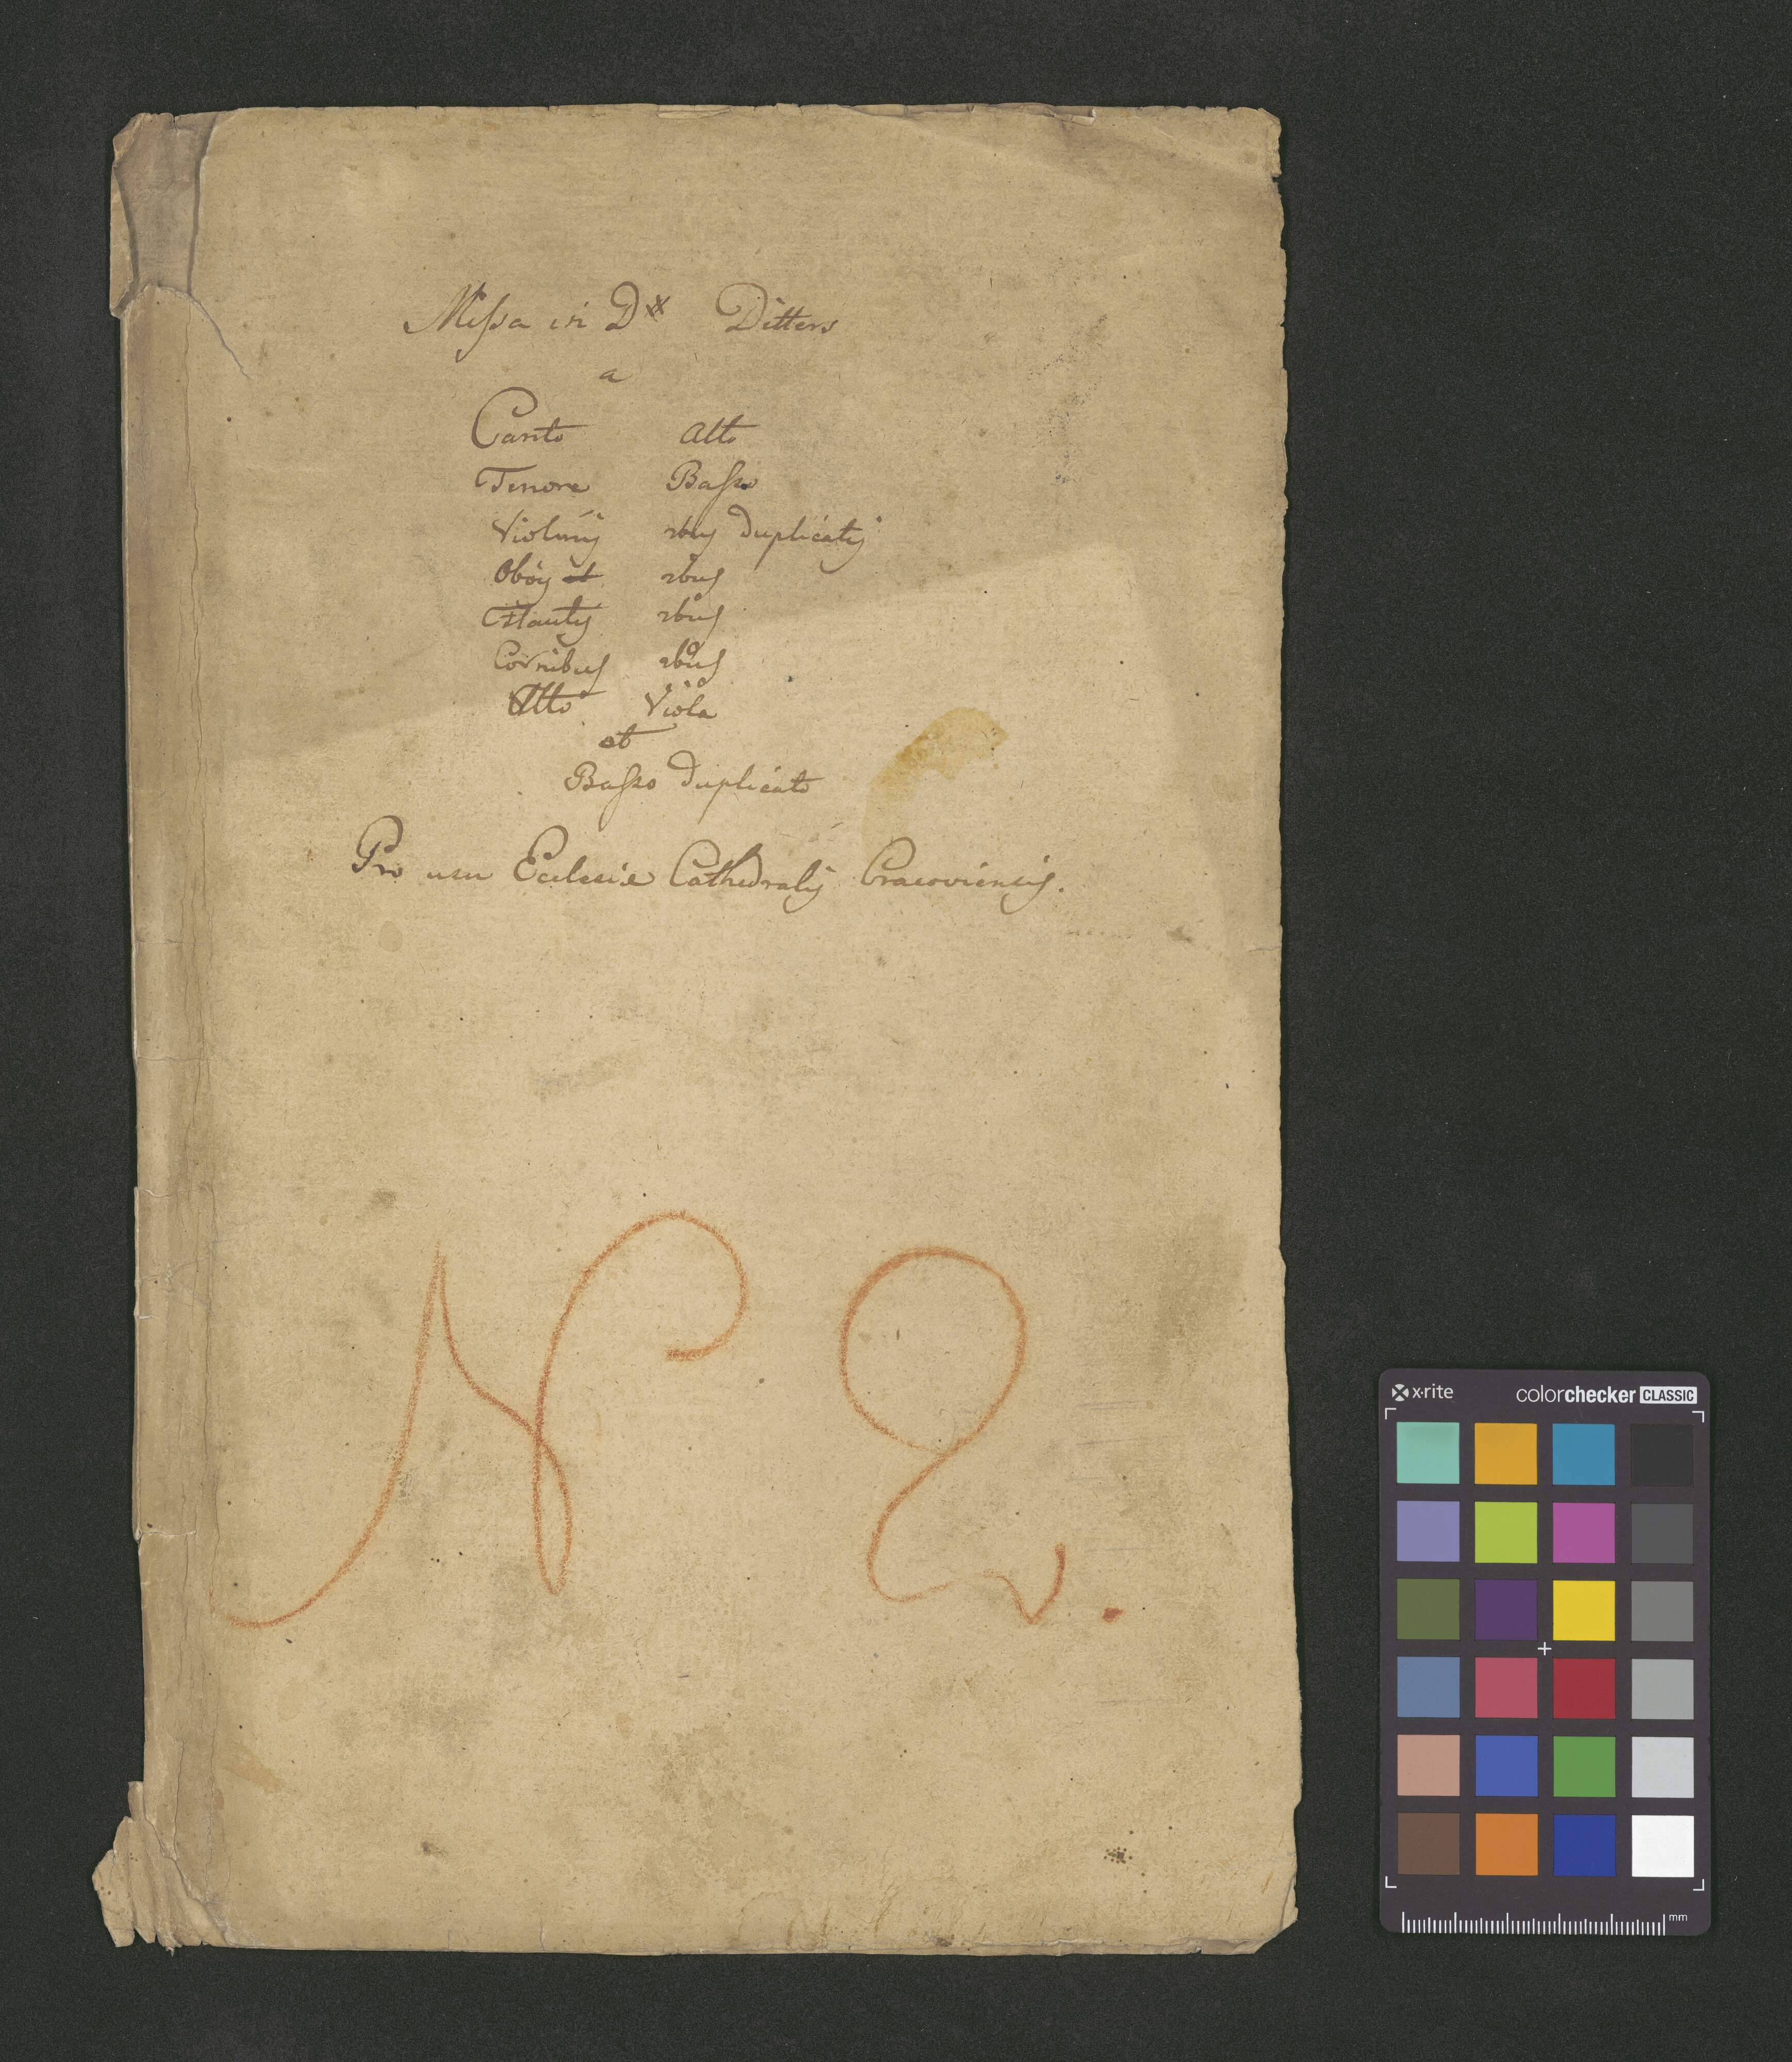 Missa in D# Ditters
a
Canto Alto
Tenore Basso
Violinis 2bus Duplicatis
Obois et 2bus
Flautis 2bus
Cornibus 2bus
Alto Viola
et
Basso Duplicato
Pro usu Eclesiæ Cathedralis Cracoviensis.
N 2.
x·rite colorchecker CLASSIC
mm